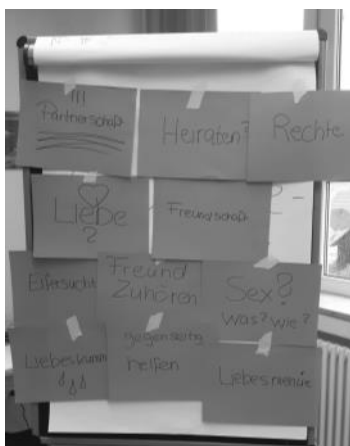 !!!
Partnerschaft
Heiraten?
Rechte
Liebe
?
Freundschaft
Eifersucht
Freund
Zuhören
Sex?
was? wie?
Liebeskummer
gegenseitig
helfen